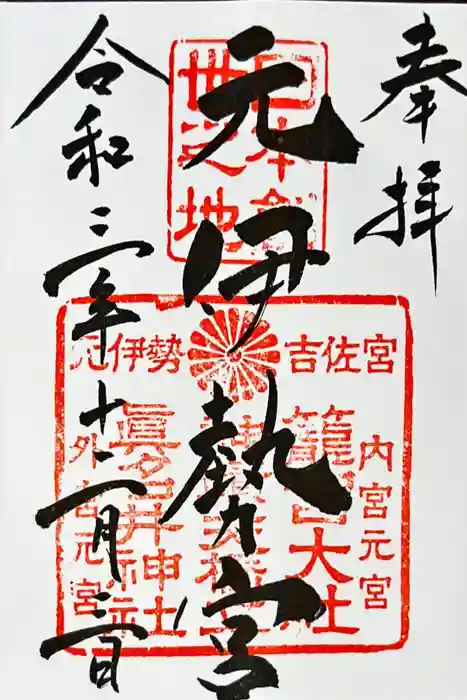 奉拝
元伊勢宮
令和三年十一月三日
日本創
丗之地
吉佐宮
元伊勢
内宮元宮
籠宮大社
眞名井神社
外宮元宮